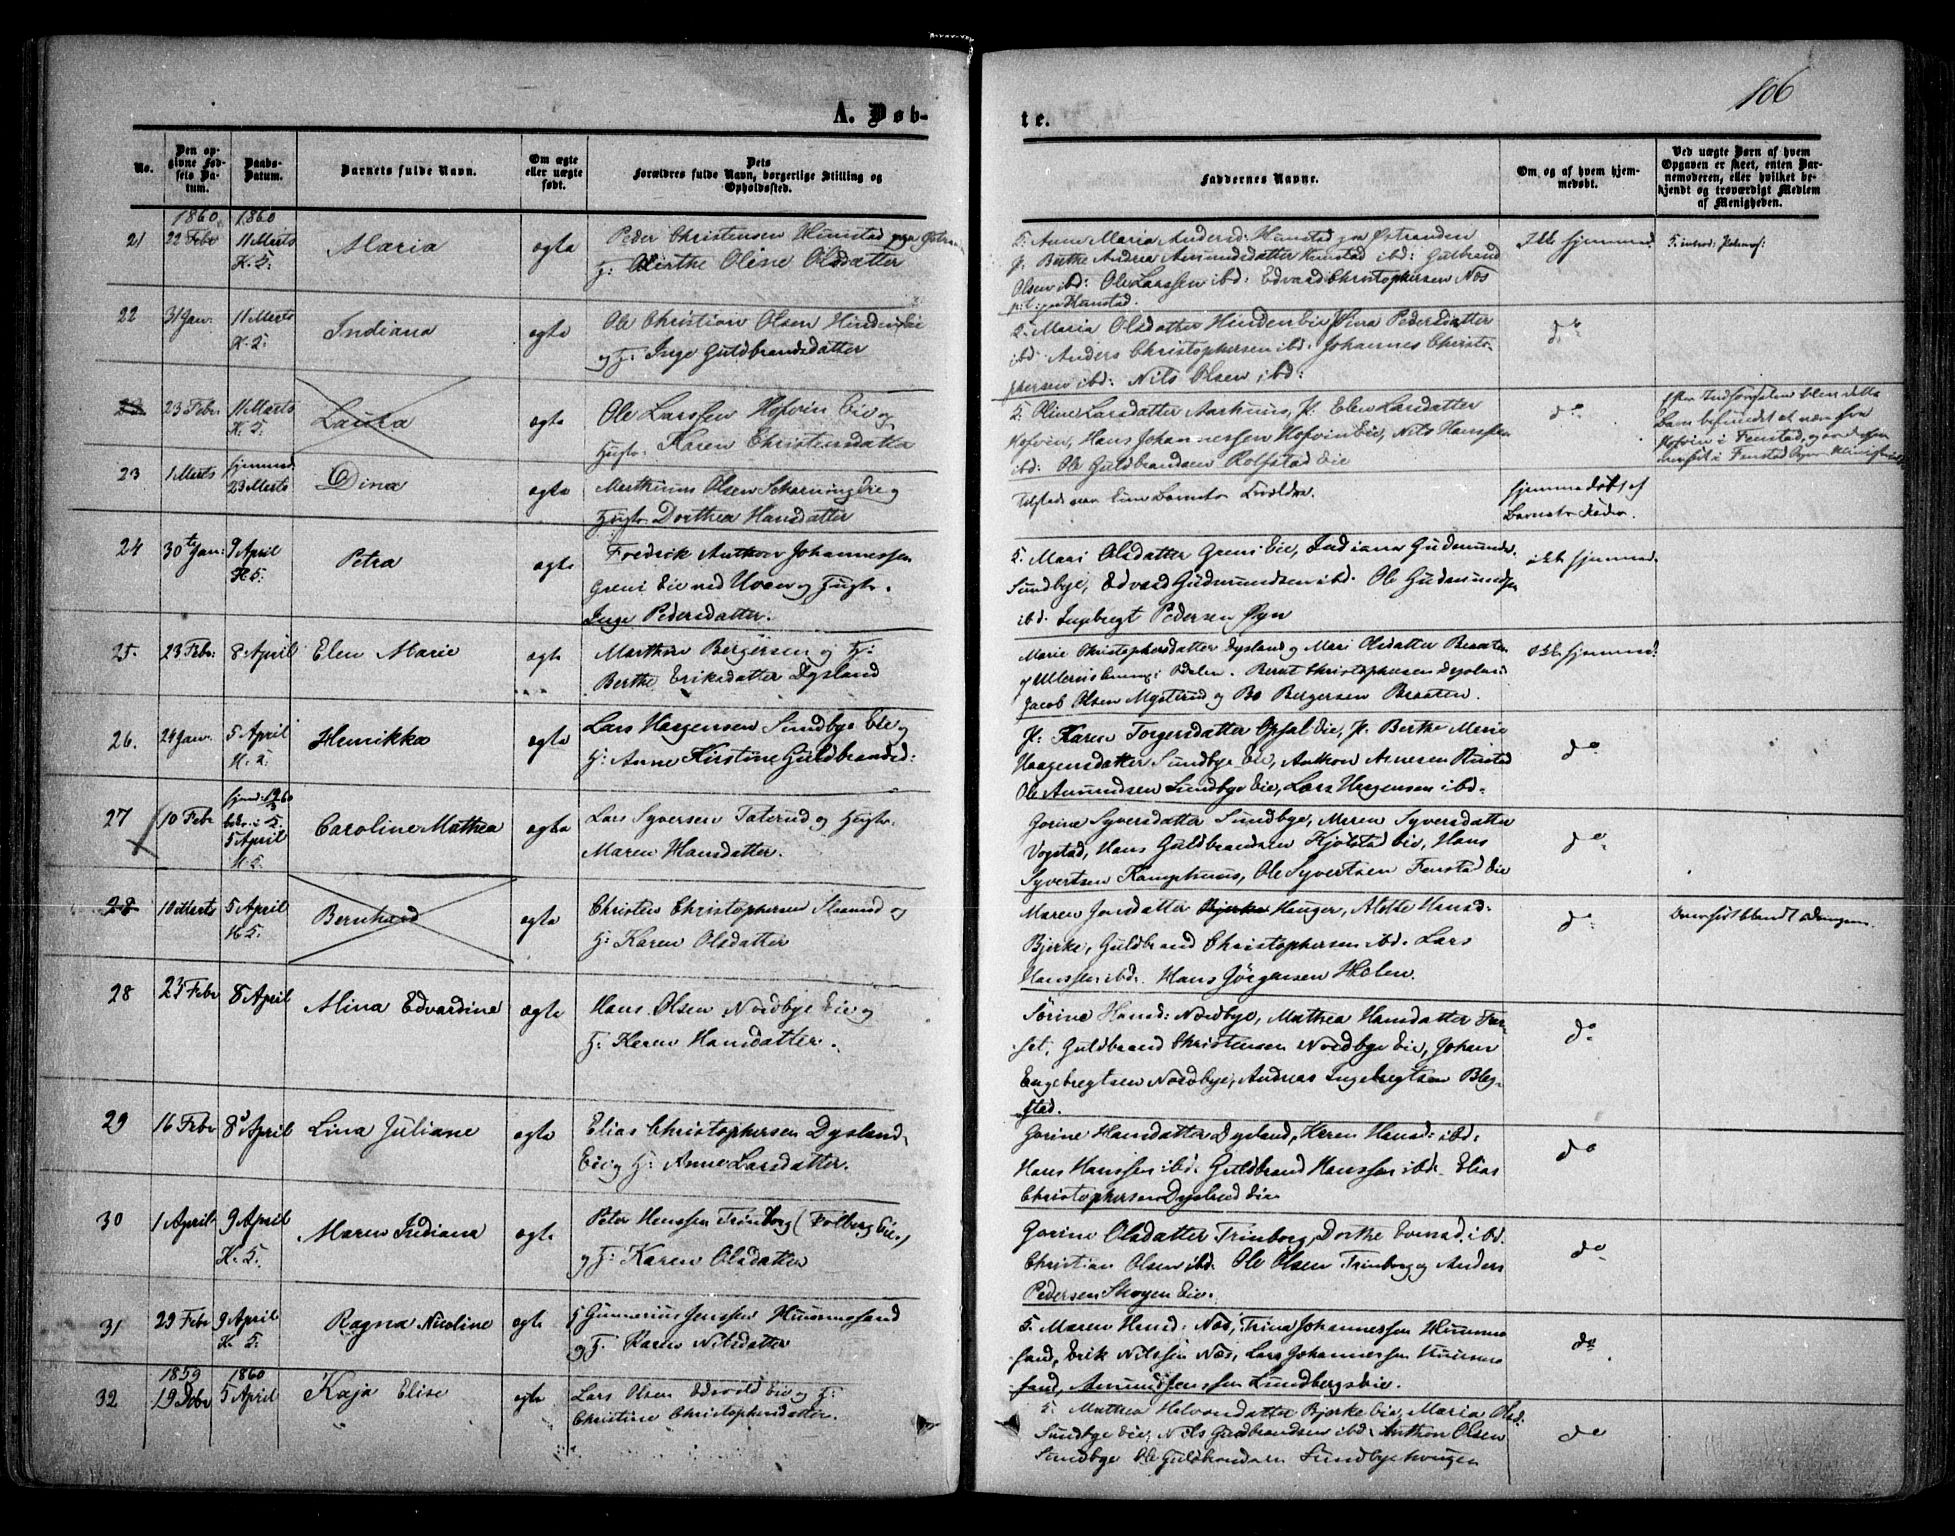 106
A. Døb-
te.
No.
Den op-
givne Fød-
sels Da-
tum.
Daabs-
Datum.
Barnets fulde Navn.
Om ægte
eller uægte
født.
Dets
Forældres fulde Navn, borgerlige Stilling og
Opholdssted.
Faddernes Navne.
Om og af hvem hjem-
medøbt.
Ved uægte Børn af hvem
Opgaven er skeet, enten Bar-
nemoderen, eller hvilket be-
kjendt og troværdigt Medlem
af Menigheden.
1860 1860
21 22 Febr 11 Marts Maria ægte Peder Christensen Hunstad
K. 5. H: Birthe Oline Olsdatter
5. Anne Maria Andersd. Hunstad
J. Berthe Andrea Amundsdatter Hunstad ibd: Gulbrand
Olsen ibd: Ole Larssen ibd: Edvard Christophersen Næs
Hunstad.
Ikke hjemmed.
22 31 Jan. 11 Marts Indiana ægte Ole Christian Olsen Hinden Eie
K. 5. og H: Inge Guldbrandsdatter
Maria Olsdatter Hinden Eie, Sina Pedersdatter
ibd Anders Christophersen ibd. Johannes Christo-
phersen ibd: Nils Olsen ibd:
do
23 23 Febr. 11 Marts Laura ægte Ole Larssen Hofvin Eie og
K. 5. Hustr. Karen Christensdatter
5. Oline Larsdatter Aarhuus, P. Elen Larsdatter
Hofvin, Hans Johannessen Hofvin Eie, Nils Hanssen
ibd: Ole Guldbrandsen Rolfstad Eie
do
Barn befundet at være fra
Hofvin i Fenstad, og
23 1 Marts hjemmed. 23 Marts Dina ægte Marthinus Olsen Skarning Eie og
Hustr. Dorthea Hansdatter
Barnets Forældre.
hjemmedøbt af
Barnets Fader.
24 30te Jan: 9 April Petra ægte Fredrik Anthon Johannessen
K. 5. Greni Eie ved og Hustr.
Inge Pedersdatter.
5. Mari Olsdatter Greni Eie, Indiana Gudmunds.
Sundbye, Edvard Gudmundsen ibd. Ole Gudmundsen
ibd. Ingebregt Pedersen Øyn
ikke hjemmed.
25. 23 Febr: 8 April Elen Marie ægte Marthin Bergersen og H:
Berthe Eriksdatter Dysland
Marie Christophersdatter Dysland og Mari Olsdatter Braaten
i Odalen. Bernt Christophersen Dysland
Jacob Olsen Mysterud og Bo Bergersen Braaten.
ikke hjemmed.
26. 24 Jan. 5 April Henrikka ægte Lars Haagensen Sundbye Eie og
K. 5. H: Anne Kirstine Guldbrandsd:
P: Karen Torgersdatter Opsal Eie, P. Berthe Marie
Haagensdatter Sundbye Eie, Anthon Arnesen
Ole Amundsen Sundbye Eie, Lars Haagensen ibd.
do
27 10 Febr Caroline Mathea ægte Lars Syversen Taterud og Hustr.
5 April Maren Hansdatter.
K. 5.
Gorine Syversdatter Sundbye, Maren Syversdatter
Vogstad, Hans Guldbrandsen Kjølstad Eie, Hans
Syvertsen Kamphuus, Ole Syvertsen Fenstad Eie
do
28 10 Marts 5 April Bernhard ægte Christen Christophersen og
K. 5. H: Karen Olsdatter
Maren Jensdatter Bjerke Hauger, Alette Hansd.
Bjerke, Guldbrand Christophersen ibd. Lars
Hanssen ibd. Hans Jörgensen Holen.
do
henført blandt Drengene.
28 23 Febr 8 April Alina Edvardine ægte Hans Olsen Nordbye Eie og
H: Karen Hansdatter.
Sorine Hansd: Nordbye, Mathea Hansdatter Far-
set, Guldbrand Christensen Nordbye Eie, Johan
Engebregtsen Nordbye, Andreas Ingebregtsen Bleg-
stad.
do
29 16 Febr 8 April Lina Juliane ægte Elias Christophersen Dysland
Eie og H: Anne Larsdatter.
Gorine Hansdatter Dysland, Karen Hansd: ibd.
Hans Hanssen ibd. Guldbrand Hanssen ibd. Elias
Christophersen Dysland Eie
do
30 1 April 9 April Maren Indiana ægte Peter Hanssen Trinborg (Folberg Eie)
K. 5. og H: Karen Olsdatter
Gorine Olsdatter Trinborg, Dorthe Evensd. ibd.
Christian Olsen ibd. Ole Olsen Trinborg og Anders
Pedersen Skogen Eie.
do
31 29 Febr 9 April Ragna Nicoline ægte Gunnerius Jenssen Huunnesand
K. 5. og H. Karen Nilsdatter
5. Maren Hansd: Næs, Trina Johannessen
sand, Erik Nilssen Næs, Lars Johannessen
sand, Amund Jenssen Lundbergs Eie.
do
1859 1860
32 19 Debr 5 April Kaja Elise ægte Lars Olsen Edsvold Eie og H:
Christine Christophersdatter.
5. Mathea Halvorsdatter Bjerke Eie, Maria Olsd:
Sundbye Eie, Nils Guldbrandsen ibd. Anthon Olsen
Sundbye Ole Guldbrandsen Sundbyehaugen
do